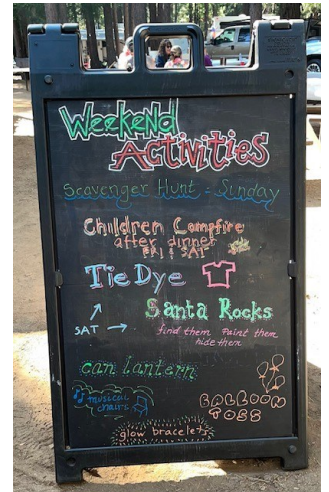 Weekend
Activities
Scavenger Hunt - Sunday
Children Campfire
after dinner
FRI & SAT
Tie Dye
Santa Rocks
SAT
find them Paint them
hide them
can lantern
musical
chairs
BALLOON
TOSS
glow bracelets